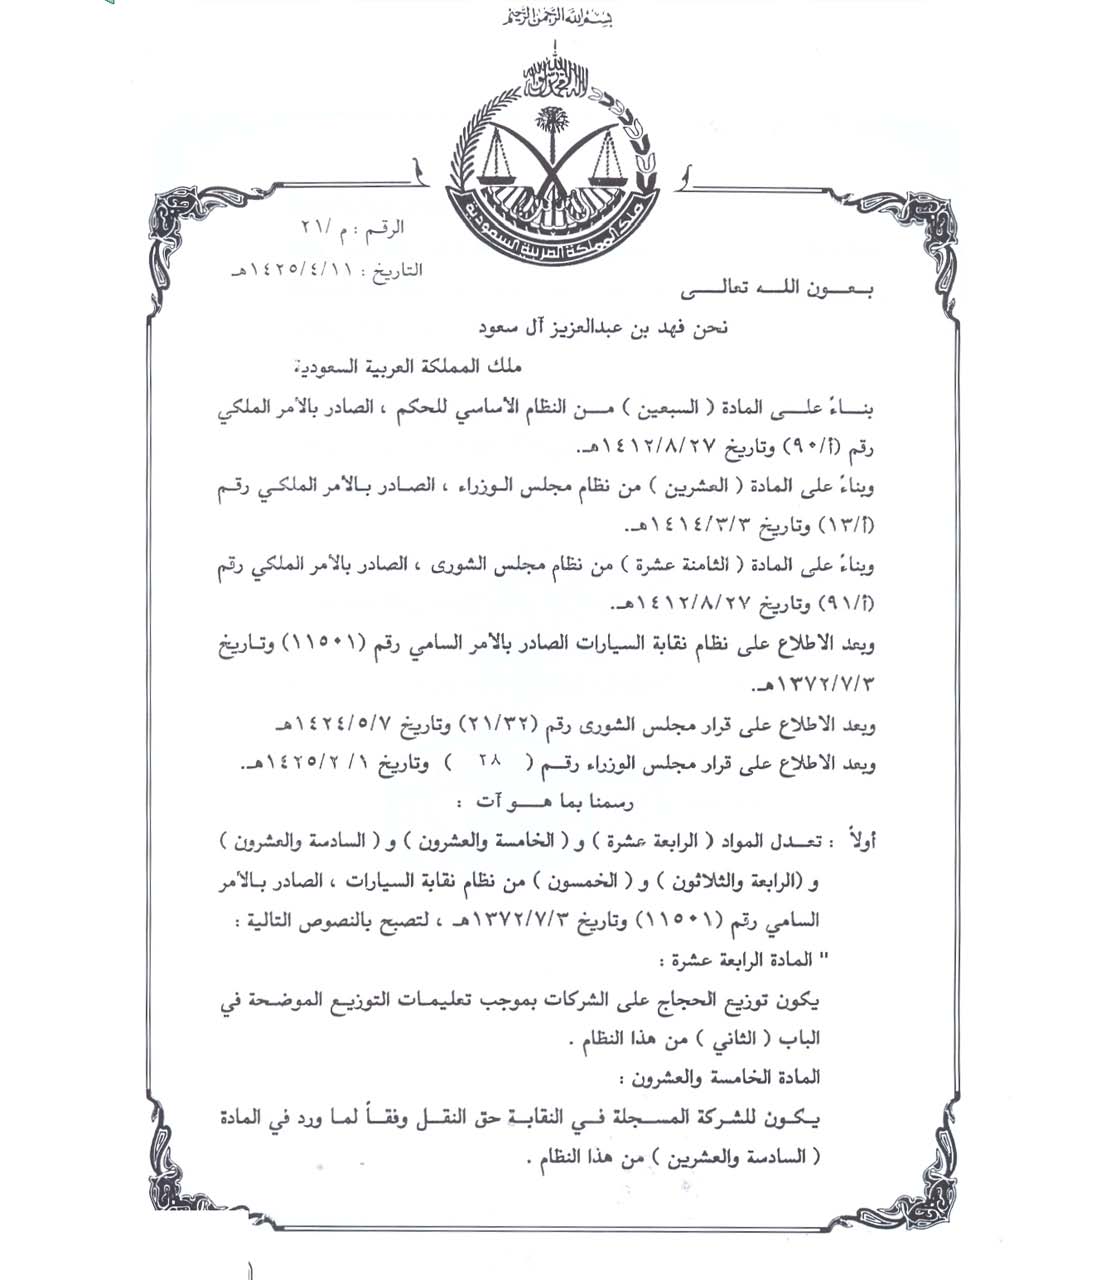 بسم الله الرحمن الرحيم
لا إله إلا الله محمد رسول الله
ملك المملكة العربية السعودية
الرقم : م /٢١
التاريخ : ١٤٢٥/٤/١١هـ
بعون الله تعالى
نحن فهد بن عبدالعزيز آل سعود
ملك المملكة العربية السعودية
بناءً على المادة ( السبعين ) من النظام الأساسي للحكم ، الصادر بالأمر الملكي
رقم (أ/٩٠) وتاريخ ١٤١٢/٨/٢٧هـ.
وبناءً على المادة ( العشرين ) من نظام مجلس الوزراء ، الصادر بالأمر الملكي رقم
(أ/١٣) وتاريخ ١٤١٤/٣/٣هـ.
وبناءً على المادة ( الثامنة عشرة ) من نظام مجلس الشورى ، الصادر بالأمر الملكي رقم
(أ/٩١) وتاريخ ١٤١٢/٨/٢٧هـ.
وبعد الاطلاع على نظام نقابة السيارات الصادر بالأمر السامي رقم (١١٥٠١) وتاريخ
١٣٧٢/٧/٣هـ.
وبعد الاطلاع على قرار مجلس الشورى رقم (٢١/٣٢) وتاريخ ١٤٢٤/٥/٧هـ
وبعد الاطلاع على قرار مجلس الوزراء رقم ( ٢٨ ) وتاريخ ١٤٢٥/٢/١هـ.
رسمنا بما هو آت :
أولاً : تعدل المواد ( الرابعة عشرة ) و ( الخامسة والعشرون ) و ( السادسة والعشرون )
و (الرابعة والثلاثون ) و ( الخمسون ) من نظام نقابة السيارات ، الصادر بالأمر
السامي رقم (١١٥٠١) وتاريخ ١٣٧٢/٧/٣هـ ، لتصبح بالنصوص التالية :
" المادة الرابعة عشرة :
يكون توزيع الحجاج على الشركات بموجب تعليمات التوزيع الموضحة في
الباب ( الثاني ) من هذا النظام .
المادة الخامسة والعشرون :
يكون للشركة المسجلة في النقابة حق النقل وفقاً لما ورد في المادة
( السادسة والعشرين ) من هذا النظام .